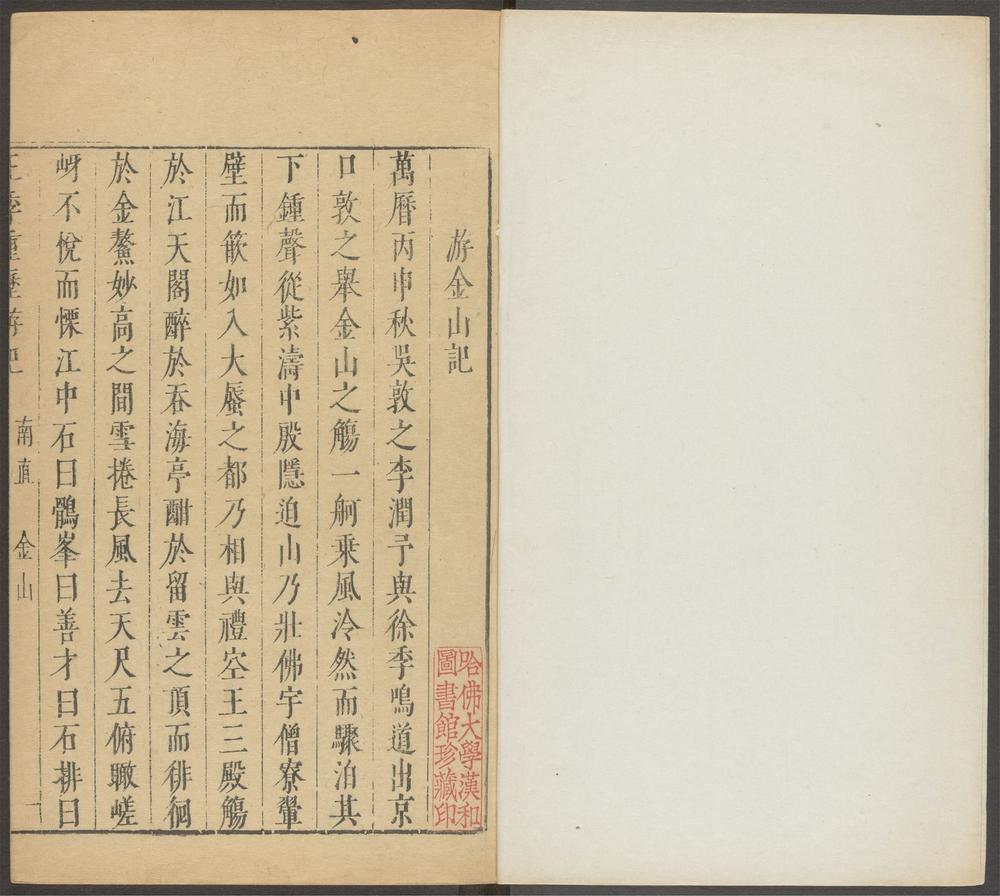 游金山記
萬曆丙申秋吳敦之李潤予與徐季鳴道出京
口敦之舉金山之觴一舸乘風泠然而驟泊其
下鍾聲從紫濤中殷隱迫山乃壯佛宇僧寮翬
壁而篏如入大蜃之都乃相與禮空王三殿觴
於江天閣醉於吞海亭酣於留雲之頂而徘徊
於金鰲妙高之間雪捲長風去天尺五俯瞰嵯
岈不悅而慄江中石曰鶻峯曰善才曰石排曰
王季重歷游記 南直 金山 一
哈佛大學漢和
圖書館珍藏印